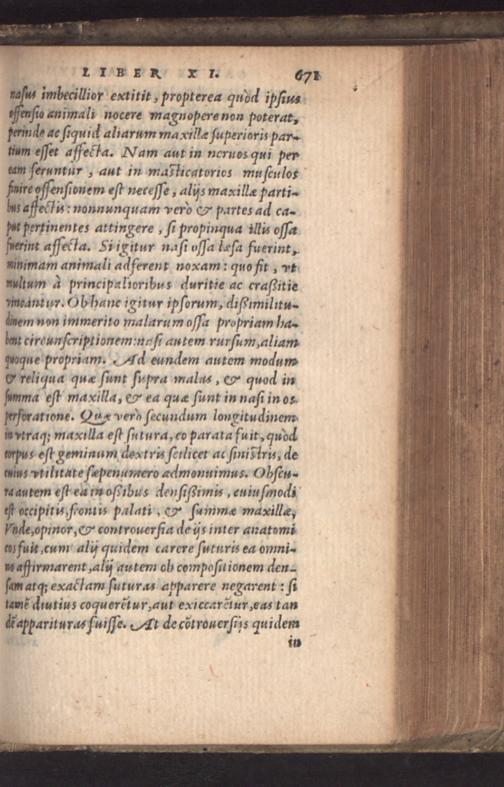 LIBER XI. 671
nasus imbecillior extitit, propterea quòd ipsius
offensio animali nocere magnopere non poterat,
perinde ac siquid aliarum maxillæ superioris par-
tium esset affecta. Nam aut in neruos qui per
eam feruntur, aut in masticatorios musculos
finire offensionem est necesse, alijs maxillæ parti-
bus affectis: nonnunquam verò & partes ad ca-
put pertinentes attingere, si propinqua illis ossa
fuerint affecta. Si igitur nasi ossa læsa fuerint,
minimam animali adferent noxam: quo fit, vt
multum à principalioribus duritie ac crassitie
vincantur. Ob hanc igitur ipsorum, dissimilitu-
dinem non immerito malarum ossa propriam ha-
bent circunscriptionem: nasi autem rursum, aliam
quoque propriam. Ad eundem autem modum
& reliqua quæ sunt supra malas, & quod in
summa est maxilla, & ea quæ sunt in nasi in os
perforatione. Quæ verò secundum longitudinem
in vtraq; maxilla est sutura, eo parata fuit, quòd
corpus est geminum dextris scilicet ac sinistris, de
cuius vtilitate sæpenumero admonuimus. Obscu-
ra autem est ea in ossibus densissimis, cuiusmodi
est occipitis, frontis palati, & summæ maxillæ,
Vnde, opinor, & controuersia de ijs inter anatomi
cos fuit, cum alij quidem carere suturis ea omni-
no affirmarent, alij autem ob compositionem den-
sam atq; exactam suturas apparere negarent: si
tamē diutius coquerētur, aut exiccarētur, eas tan
dē apparituras fuisse. At de cōtrouersijs quidem
in